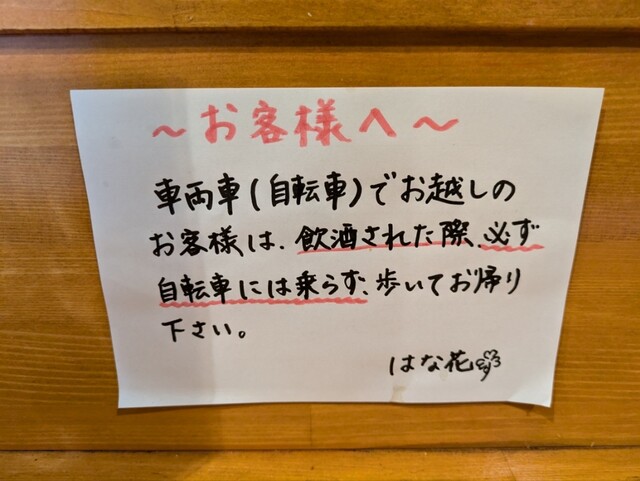 ～お客様へ～
車両車(自転車)でお越しの
お客様は、飲酒された際、必ず
自転車には乗らず、歩いてお帰り
下さい。
はな花